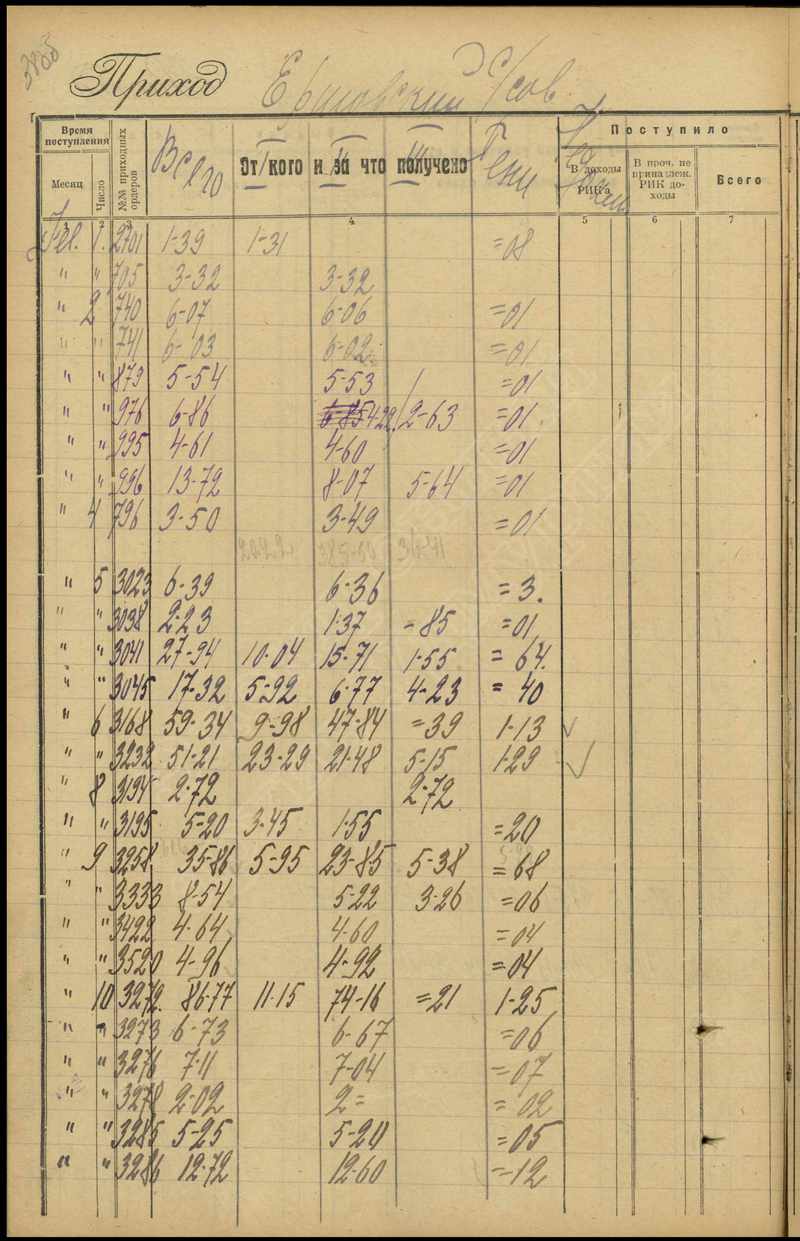 Приход с/сов.
Время поступления
Месяц
Число
№№ приходных ордеров
Всего
От кого и за что получено
I II III
Пени
Поступило
В доходы РИК'а
В проч. не принадлеж. РИК доходы
Всего
1 2 3 4 5 6 7
1. 2701 1-39 1-31 =08
" " 705 3-32 3-32
" 2 740 6-07 6-06 =01
" " 741 6-03 6-02 =01
" " 873 5-54 5-53 =01
" " 976 6-86 6-85 4-22 2-63 =01
" " 995 4-61 4-60 =01
" " 996 13-72 8-07 5-64 =01
" 4 796 3-50 3-49 =01
" 5 3023 6-39 6-36 =3.
" " 3038 2-23 1-37 -85 =01
" " 3041 27-94 10-04 15-71 1-55 =64
" " 3045 17-32 5-92 6-77 4-23 =40
" 6 3168 59-34 9-98 47-84 =39 1-13 ✓
" " 3232 51-21 23-29 21-48 5-15 1-29 ✓
" 8 3194 2-72 2-72
" " 3195 5-20 3-45 1-55 =20
" 9 3258 35-86 5-95 23-85 5-38 =68
" " 3333 8-54 5-22 3-26 =06
" " 3422 4-64 4-60 =04
" " 3520 4-96 4-92 =04
" 10 3272. 86-77 11-15 74-16 =21 1-25
" " 3273 6-73 6-67 =06
" " 3276 7-11 7-04 =07
" " 3278 2-02 2= =02
" " 3285 5-25 5-20 =05
" " 3286 12-72 12-60 =-12